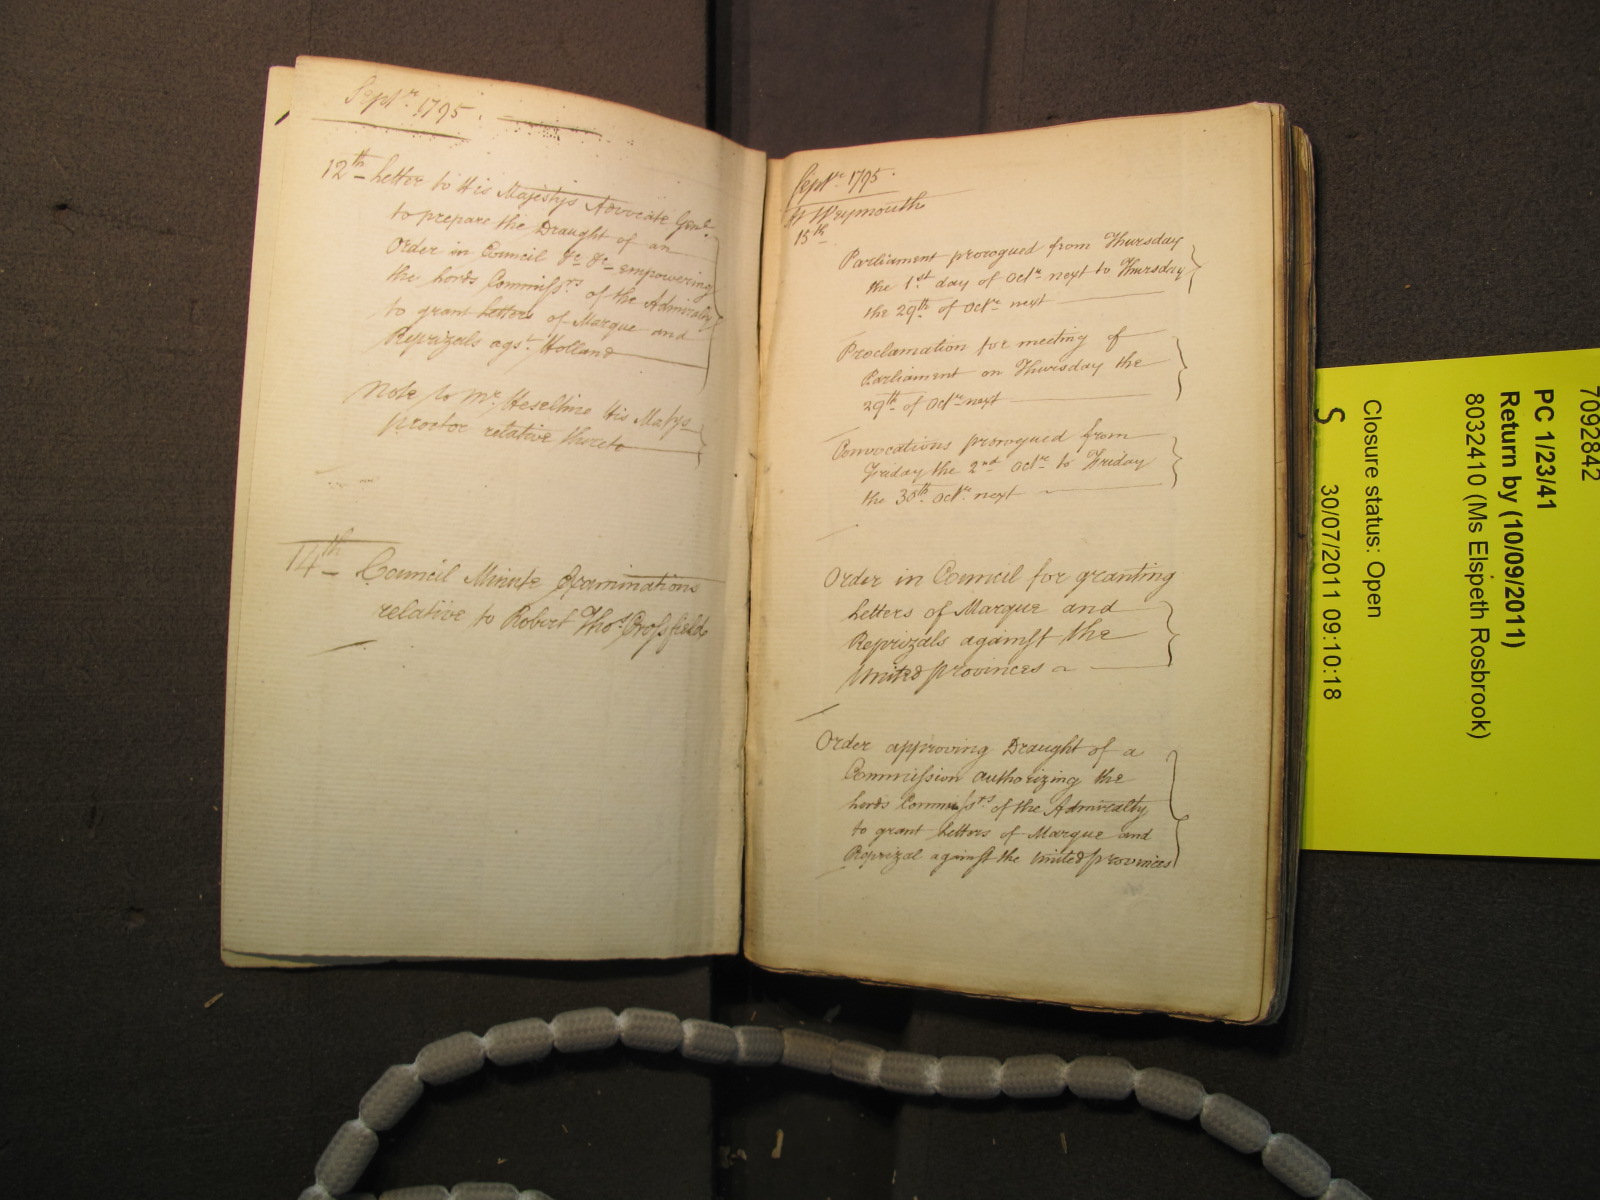 Septr. 1795.
12th Letter to His Majestys Advocate Genl.
to prepare the Draught of an
Order in Council &c &c empowering
the Lords Commissrs. of the Admiralty
to grant Letters of Marque and
Reprizals agst. Holland
Note to Mr. Heseltine His Matys
proctor relative thereto
14th Council Minute Examinations
relative to Robert Thos. Crossfield
Septr. 1795.
At Weymouth
15th
Parliament prorogued from Thursday
the 1st. day of Octr. next to Thursday
the 29th of Octr. next
Proclamation for meeting of
Parliament on Thursday the
29th of Octr. next
Convocations prorogued from
Friday the 2nd Octr. to Friday
the 30th Octr. next
Order in Council for granting
Letters of Marque and
Reprizals against the
United provinces
Order approving Draught of a
Commission authorizing the
Lords Commissrs. of the Admiralty
to grant Letters of Marque and
Reprizal against the United provinces
7092842
PC 1/23/41
Return by (10/09/2011)
8032410 (Ms Elspeth Rosbrook)
Closure status: Open
S 30/07/2011 09:10:18